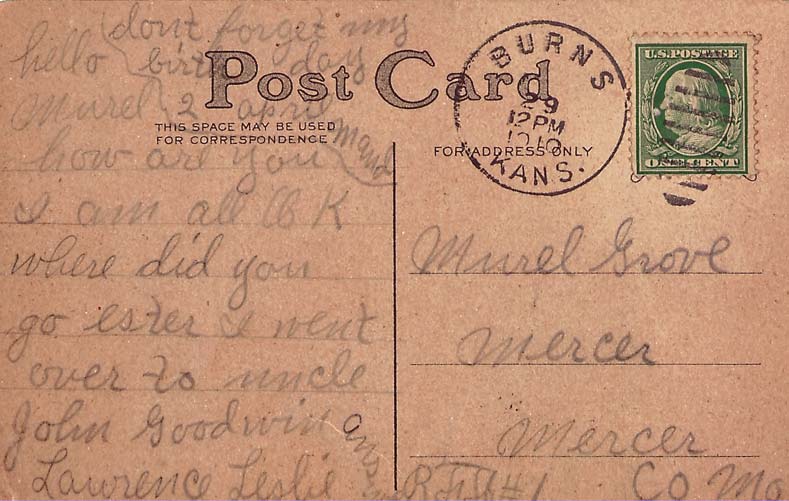 dont forget my
hello birth day
Murel 2 april
how are you
I am all O K
where did you
go ester I went
over to uncle
John Goodwin
Lawrence Leslie
Post Card
THIS SPACE MAY BE USED
FOR CORRESPONDENCE
FOR ADDRESS ONLY
BURNS
29
12 PM
1910
KANS.
U.S. POSTAGE
ONE CENT
Murel Grove
Mercer
Mercer
Co Mo